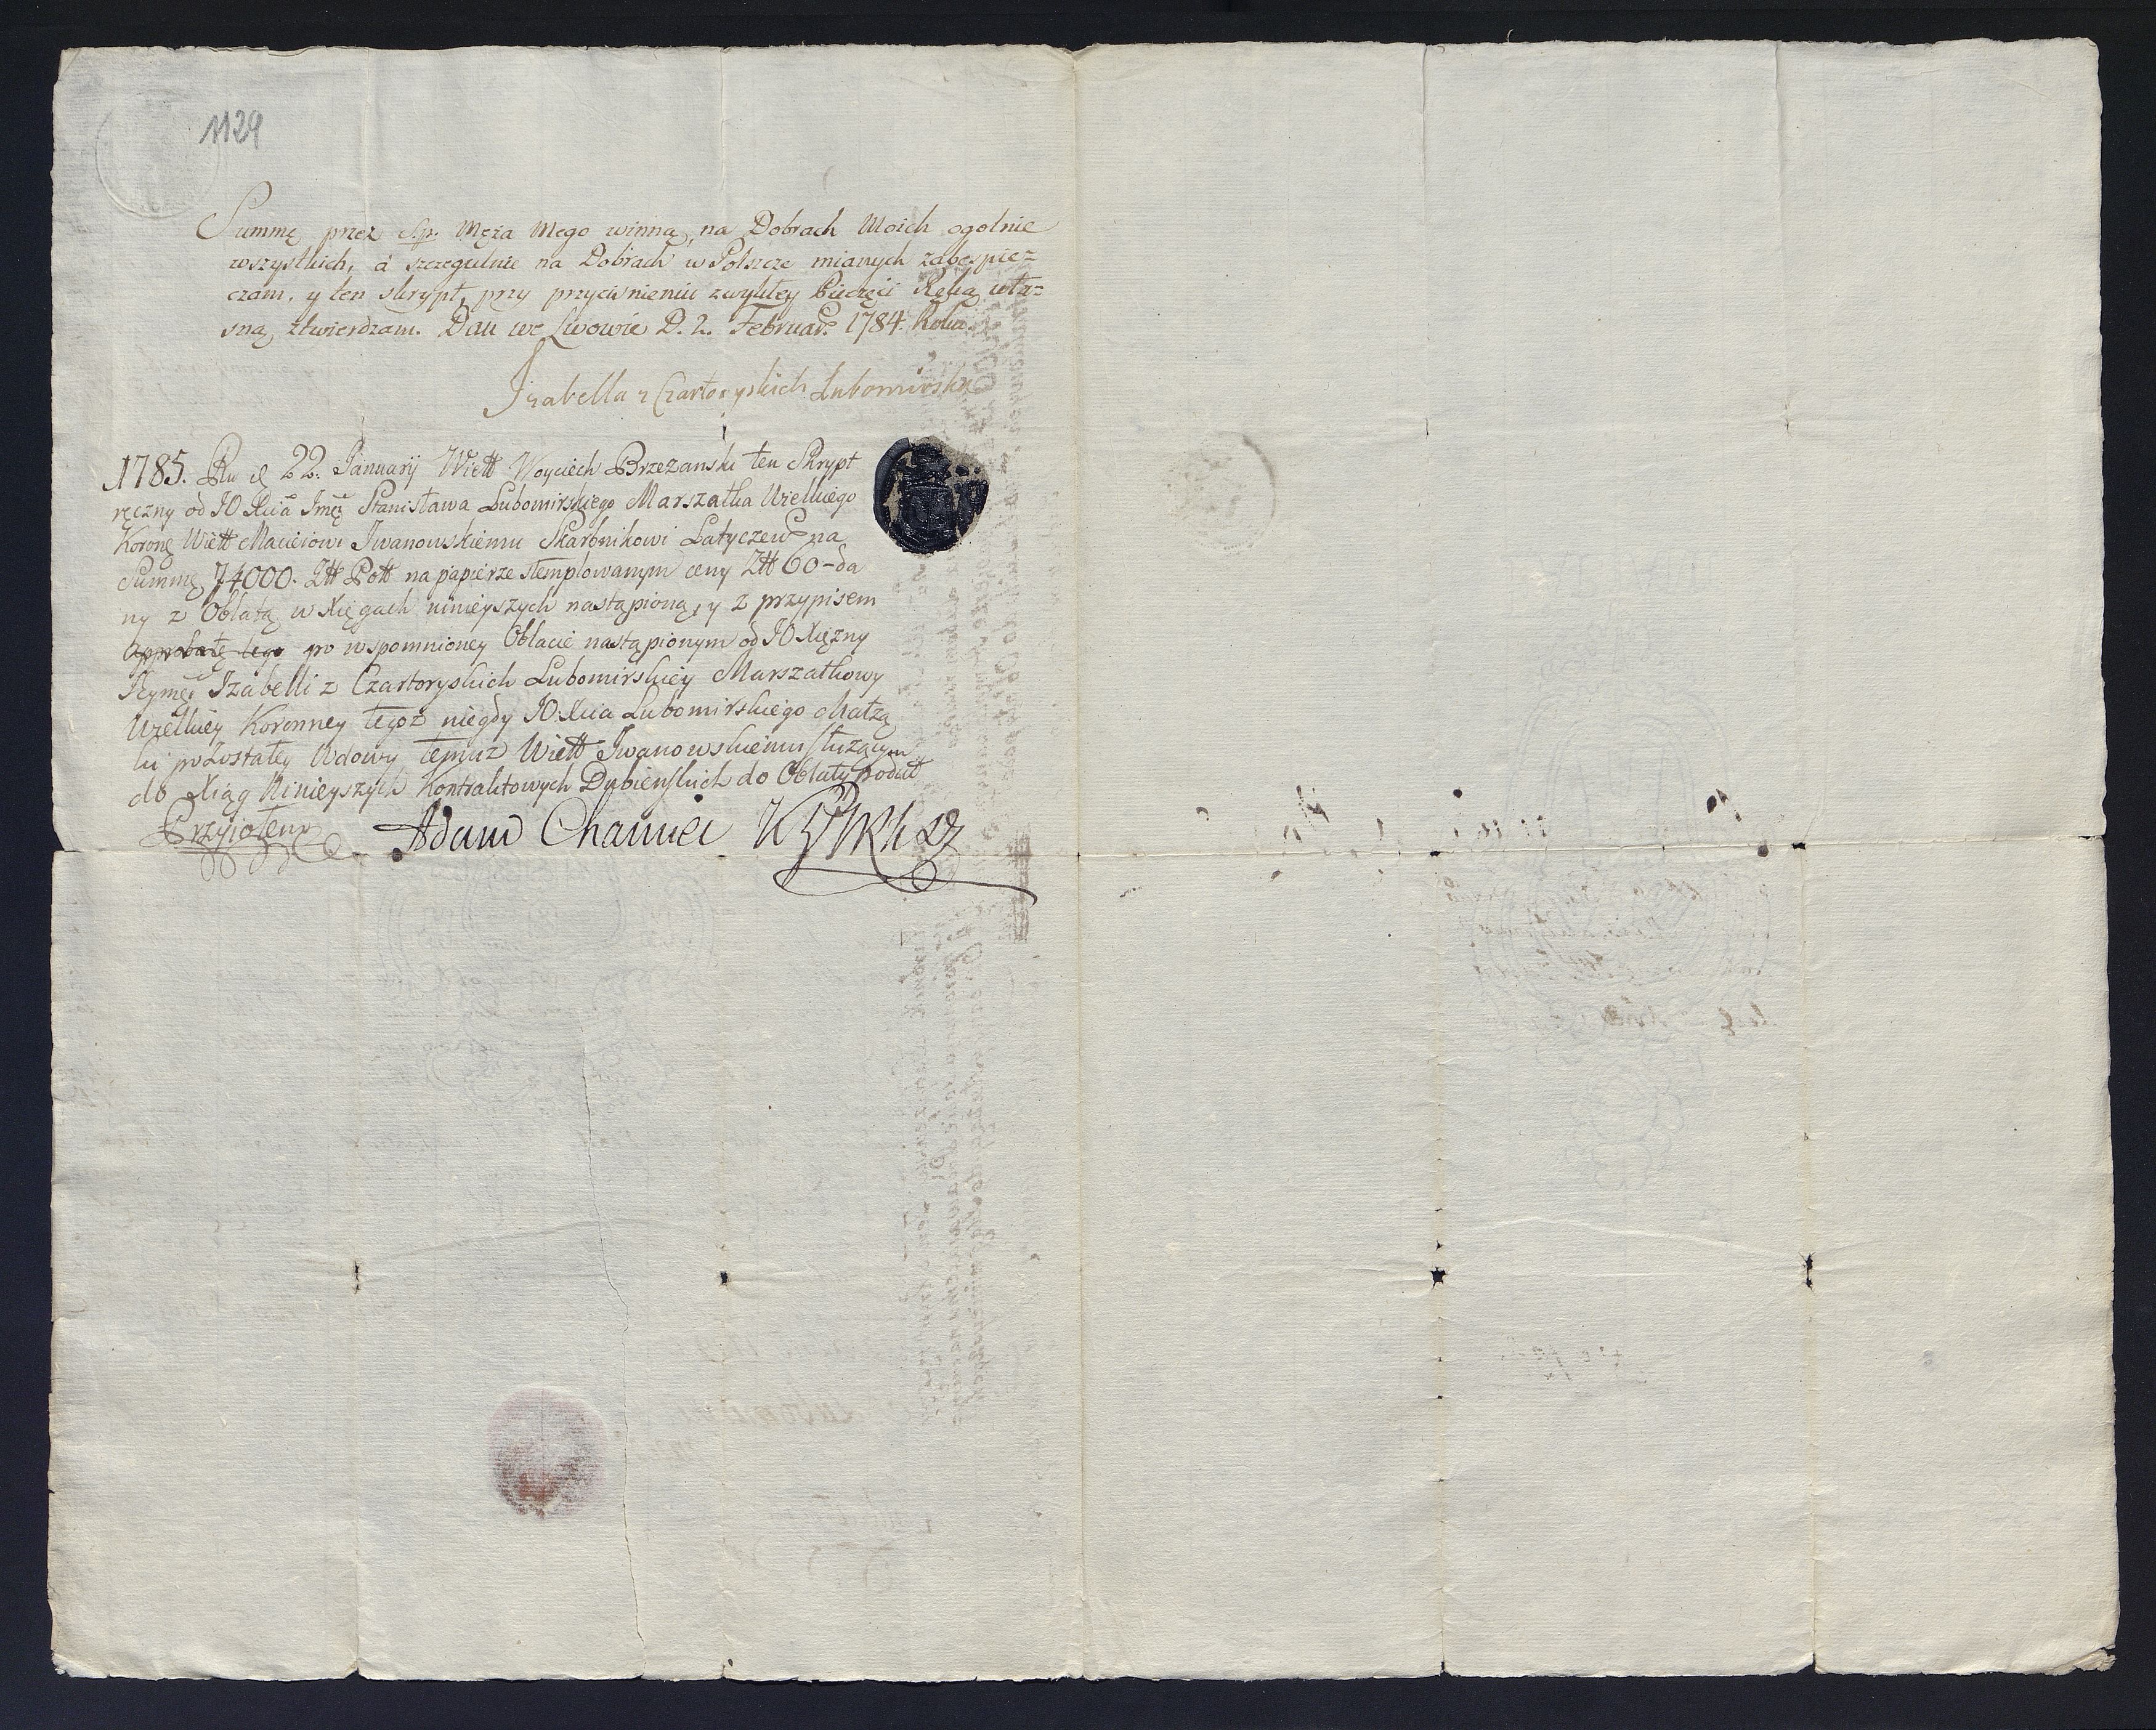 1129
Summę przez Śp. Męża Mego winną, na Dobrach Moich ogolnie
wszystkich, á szczegulnie na Dobrach w Polszcze mianych zabespie=
czam, y ten skrypt, przy przyciśnieniu zwykłey Pieczęci Ręką wła=
sną ztwierdzam. Dan we Lwowie D. 2. Februar. 1784. Roku.
Izabella z Czartoryskich Lubomirska
1785. Ru d 22. January Wiel Woyciech Brzezanski ten Skrypt
ręczny od JO Xcia Jmci Stanisława Lubomirskiego Marszałka Wielkiego
Koronę Wiel Maciejowi Iwanowskiemu Skarbnikowi Latyczew na
Summę 74000. Zł Pol na papierze stemplowanym ceny Zł 60 - da
ny z Oblatą w Xięgach ninieyszych nastąpioną, y z przypisem
approbatę tego po wspomnioney Oblacie nastąpionym od JO Xiężny
Jeymci Izabelli z Czartoryskich Lubomirskiey Marszałkowy
Wielkiey Koronney tegoż niegdy JO. Xcia Lubomirskiego Małżą
ki pozostałey Wdowy temuz Wiel Iwanowskiemu służącym
do Xiąg Ninieyszych Kontraktowych Dubienskich do Oblaty podał
Przyiołem Adam